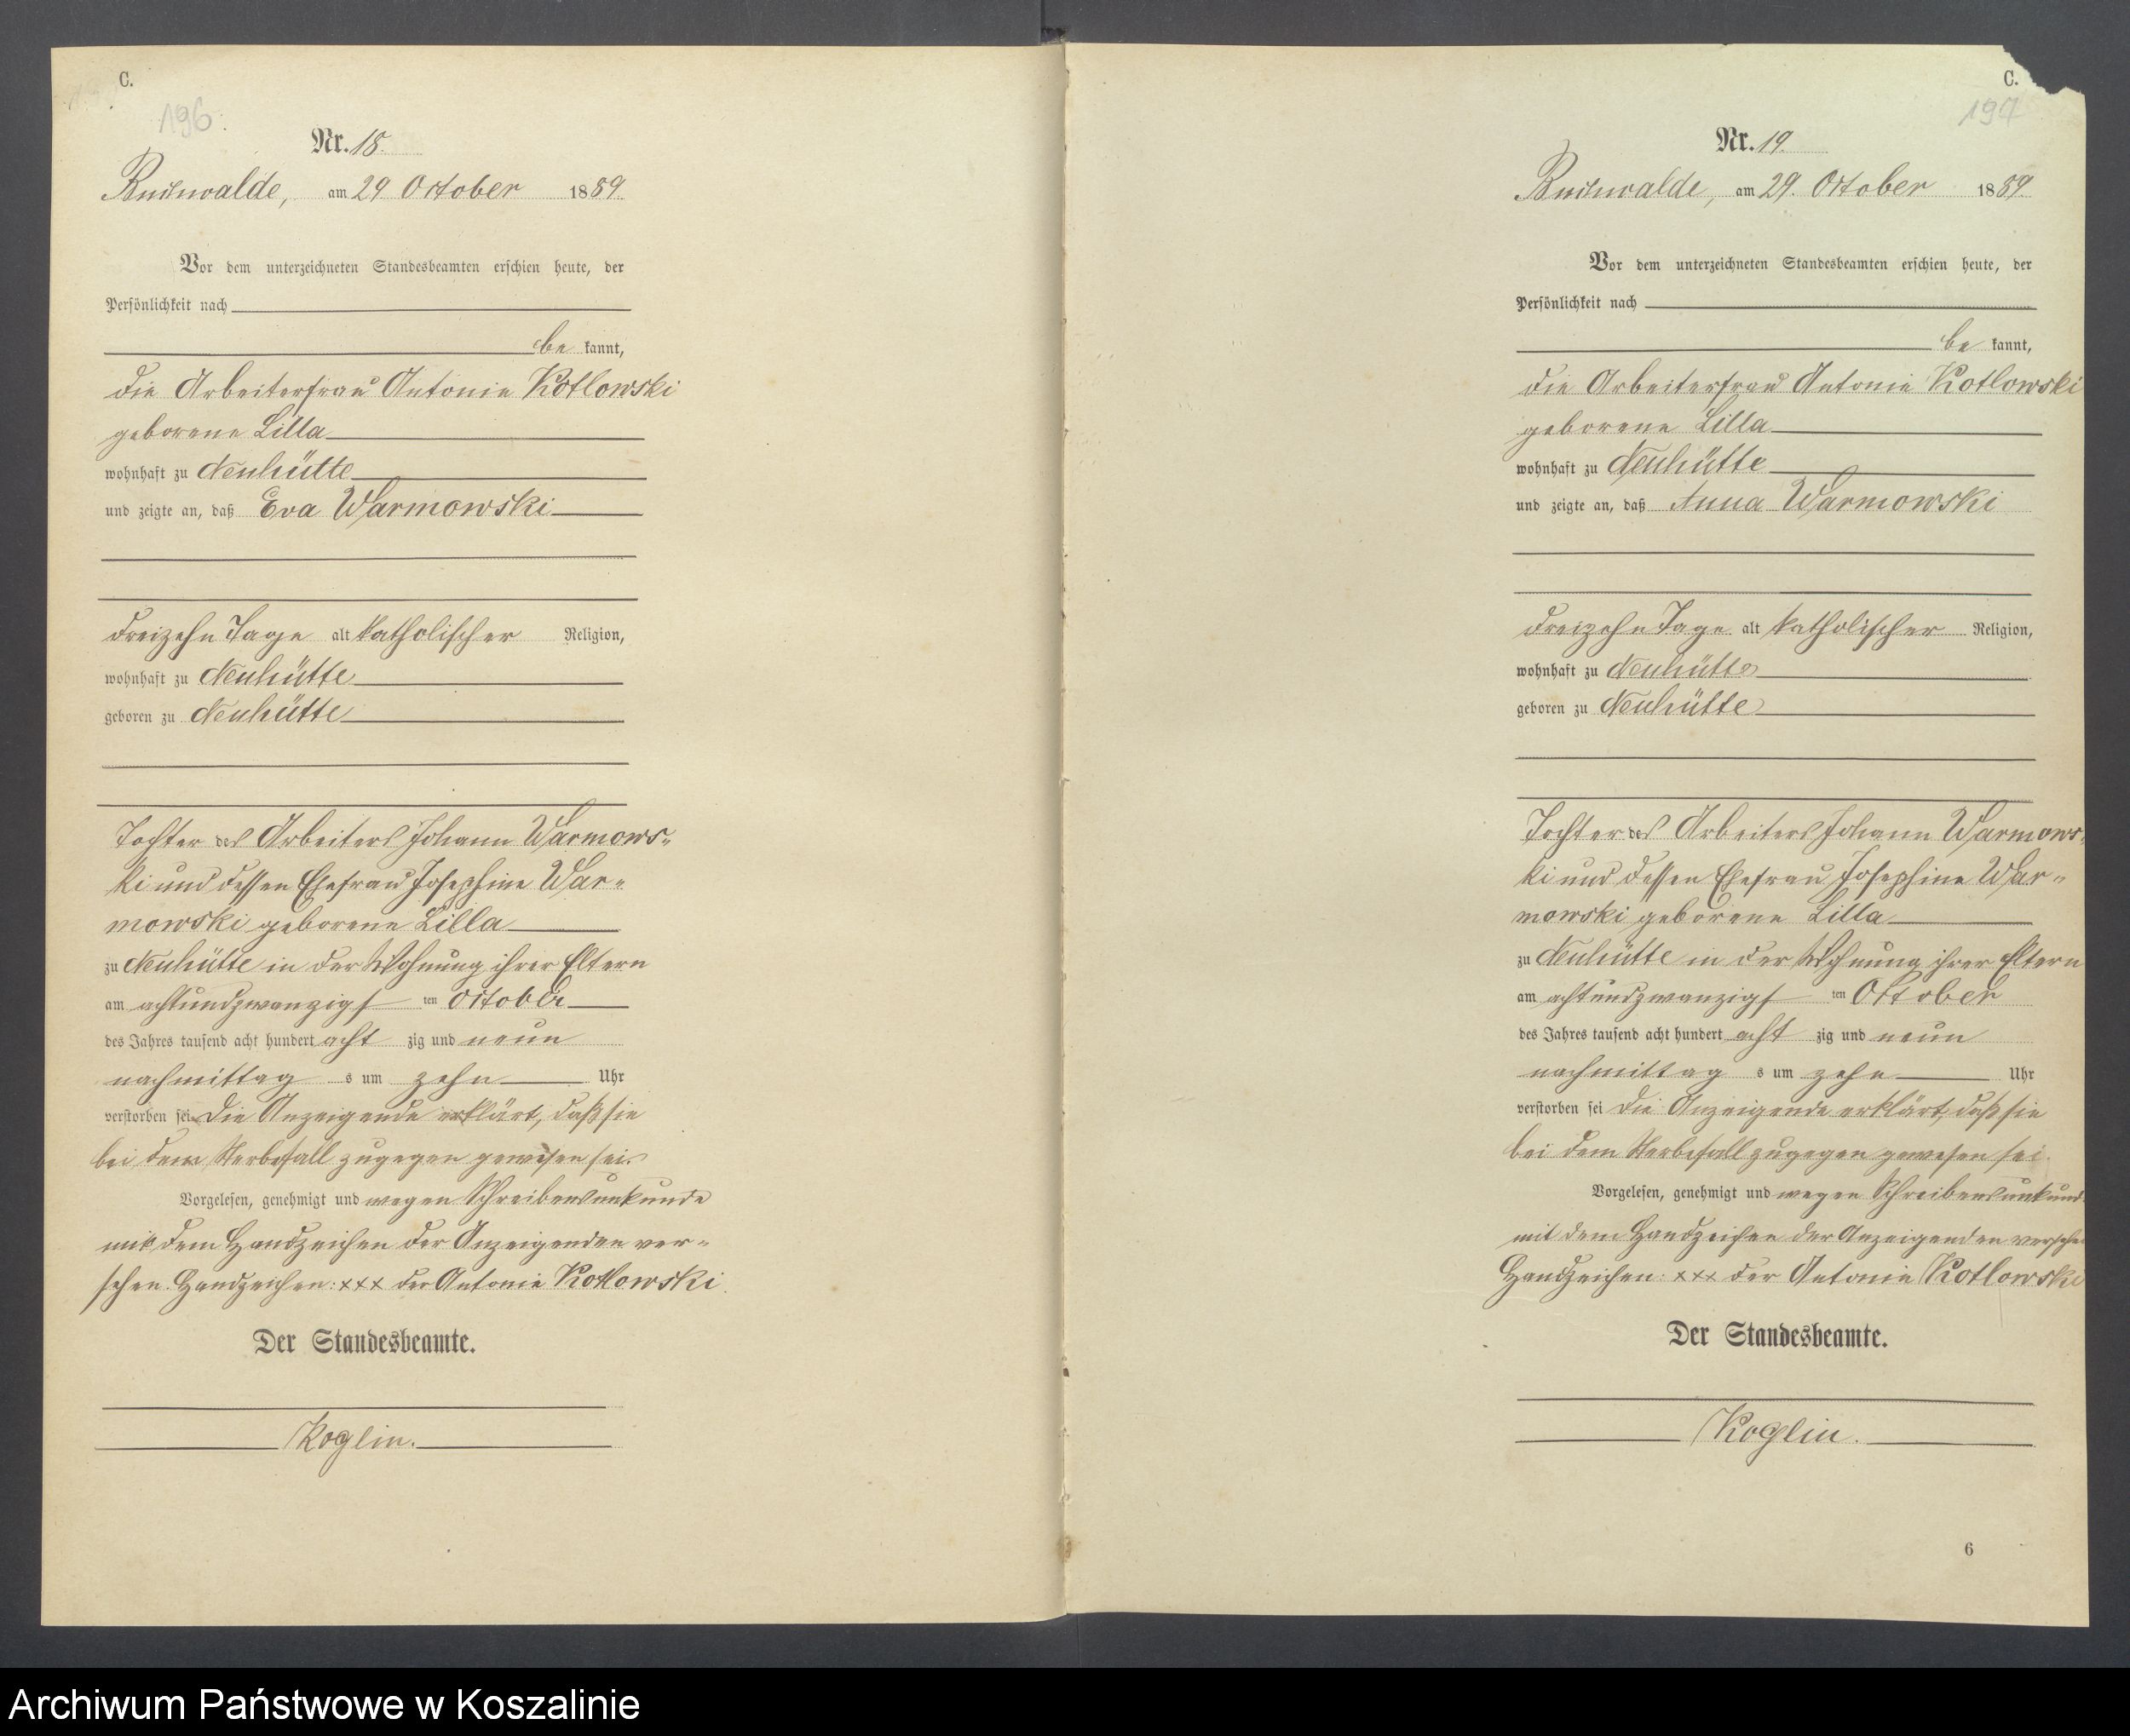 C.
196.
Nr. 18.
Buchwalde, am 29 October 1889.
Vor dem unterzeichneten Standesbeamten erschien heute, der
Persönlichkeit nach
be kannt,
die Arbeiterfrau Antonie Kotlowski
geborene Lilla
wohnhaft zu Neuhütte
und zeigte an, daß Eva Warmowski
dreizehn Tage alt katholischer Religion,
wohnhaft zu Neuhütte
geboren zu Neuhütte
Tochter des Arbeiters Johann Warmows-
ki und dessen Ehefrau Josephine War-
mowski geborene Lilla
zu Neuhütte in der Wohnung ihrer Eltern
am achtundzwanzigs ten October
des Jahres tausend acht hundert acht zig und neun
nachmittag s um zehn Uhr
verstorben sei. Die Anzeigende erklärt, daß sie
bei dem Sterbefall zugegen gewesen sei.
Vorgelesen, genehmigt und wegen Schreibensunkunde
mit dem Handzeichen der Anzeigenden ver-
sehen. Handzeichen: xxx der Antonie Kotlowski.
Der Standesbeamte.
Koglin.
C.
197
Nr. 19.
Buchwalde, am 29. October 1889
Vor dem unterzeichneten Standesbeamten erschien heute, der
Persönlichkeit nach
be kannt,
die Arbeiterfrau Antonie Kotlowski
geborene Lilla
wohnhaft zu Neuhütte
und zeigte an, daß Anna Warmowski
dreizehn Tage alt katholischer Religion,
wohnhaft zu Neuhütte
geboren zu Neuhütte
Tochter des Arbeiters Johann Warmows-
ki und dessen Ehefrau Josephine War-
mowski geborene Lilla
zu Neuhütte in der Wohnung ihrer Eltern
am achtundzwanzigs ten October
des Jahres tausend acht hundert acht zig und neun
nachmittag s um zehn Uhr
verstorben sei Die Anzeigende erklärt, daß sie
bei dem Sterbefall zugegen gewesen sei.
Vorgelesen, genehmigt und wegen Schreibensunkund
mit dem Handzeichen der Anzeigenden versehe
Handzeichen: xxx der Antonie Kotlowski
Der Standesbeamte.
Koglin.
6
Archiwum Państwowe w Koszalinie